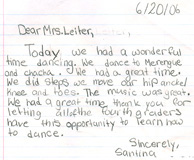 6/20/06
Dear Mrs. Leiter,
Today we had a wonderful
time dancing. We dance to Merengue
and chacha. We had a great time.
We did steps we move our hip anckel
knee and toes. The music was great.
We had a great time thank you for
letting all the fourth graders
have this opportunity to learn how
to dance.
Sincerely,
Santina